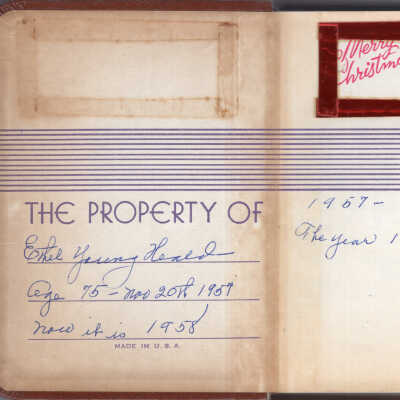 Merry
Christmas
THE PROPERTY OF
Ethel Young Heald
Age 75 - Nov 20th 1957
Now it is 1958
MADE IN U.S.A.
1957-
The year 1